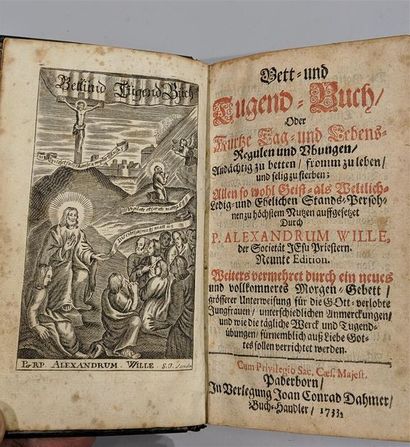 Bett und Tugend Buch
P. R.P. ALEXANDRUM. WILLE. S.J.
Bett- und
Tugend-Buch/
Oder
Kurtze Tag- und Lebens-
Regulen und Ubungen/
Andächtig zu betten/ fromm zu leben/
und selig zu sterben:
Allen so wohl Geist- als Weltlich-
Ledig- und Ehelichen Stands-Persoh-
nen zu höchstem Nutzen auffgesetzet
Durch
P. ALEXANDRUM WILLE,
der Societät JEsu Priestern.
Neunte Edition.
Weiters vermehret durch ein neues
und vollkommeres Morgen-Gebett/
größerer Unterweisung für die GOtt-verlobte
Jungfrauen/ unterschiedlichen Anmerckungen/
und wie die tägliche Werck und Tugend-
übungen/ fürnemblich auß Liebe Got-
tes sollen verrichtet werden.
Cum Privilegio Sac. Cæs. Majest.
Paderborn/
In Verlegung Joan Conrad Dahmer/
Buch-Handler/ 1733.